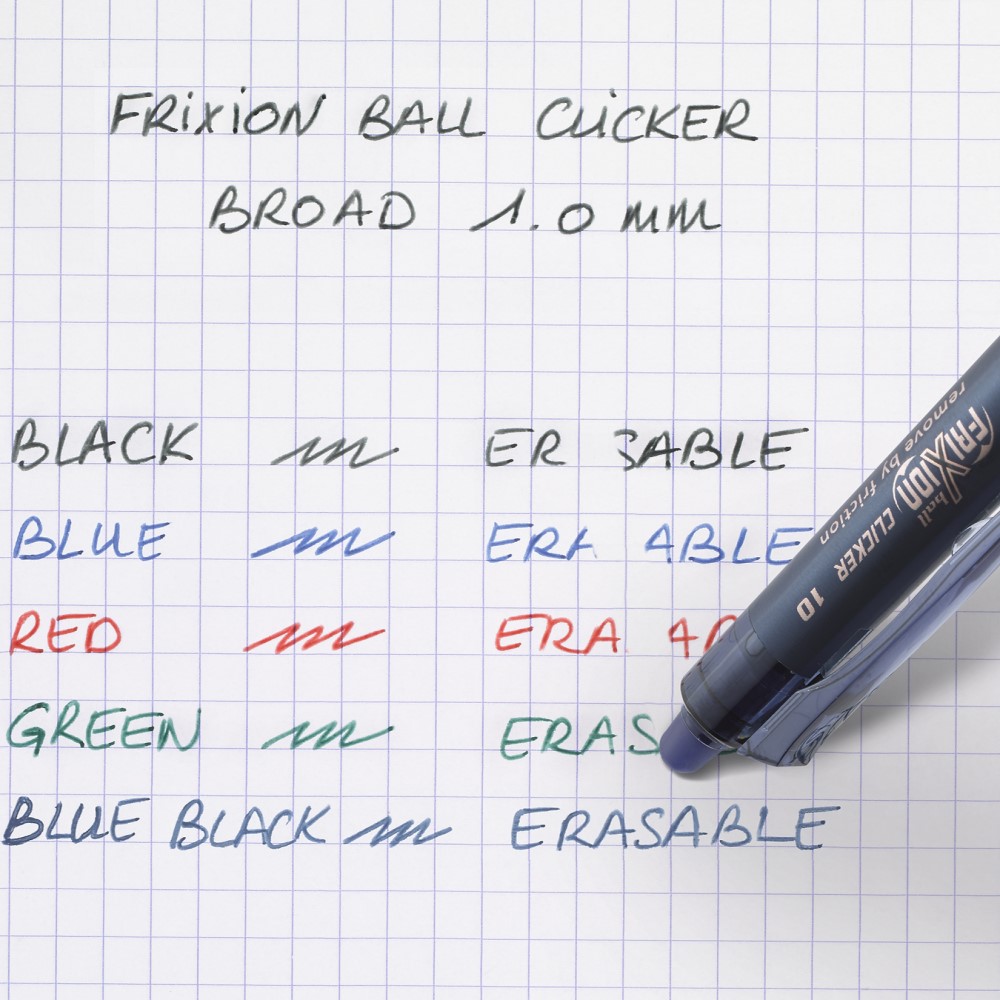 FRiXiON BALL CLiCKER
BROAD 1.0 mm
BLACK ER SABLE
BLUE ERA ABLE
RED ERA
GREEN ERAS
BLUE BLACK ERASABLE
remove by friction
FRIXION ball CLICKER 10